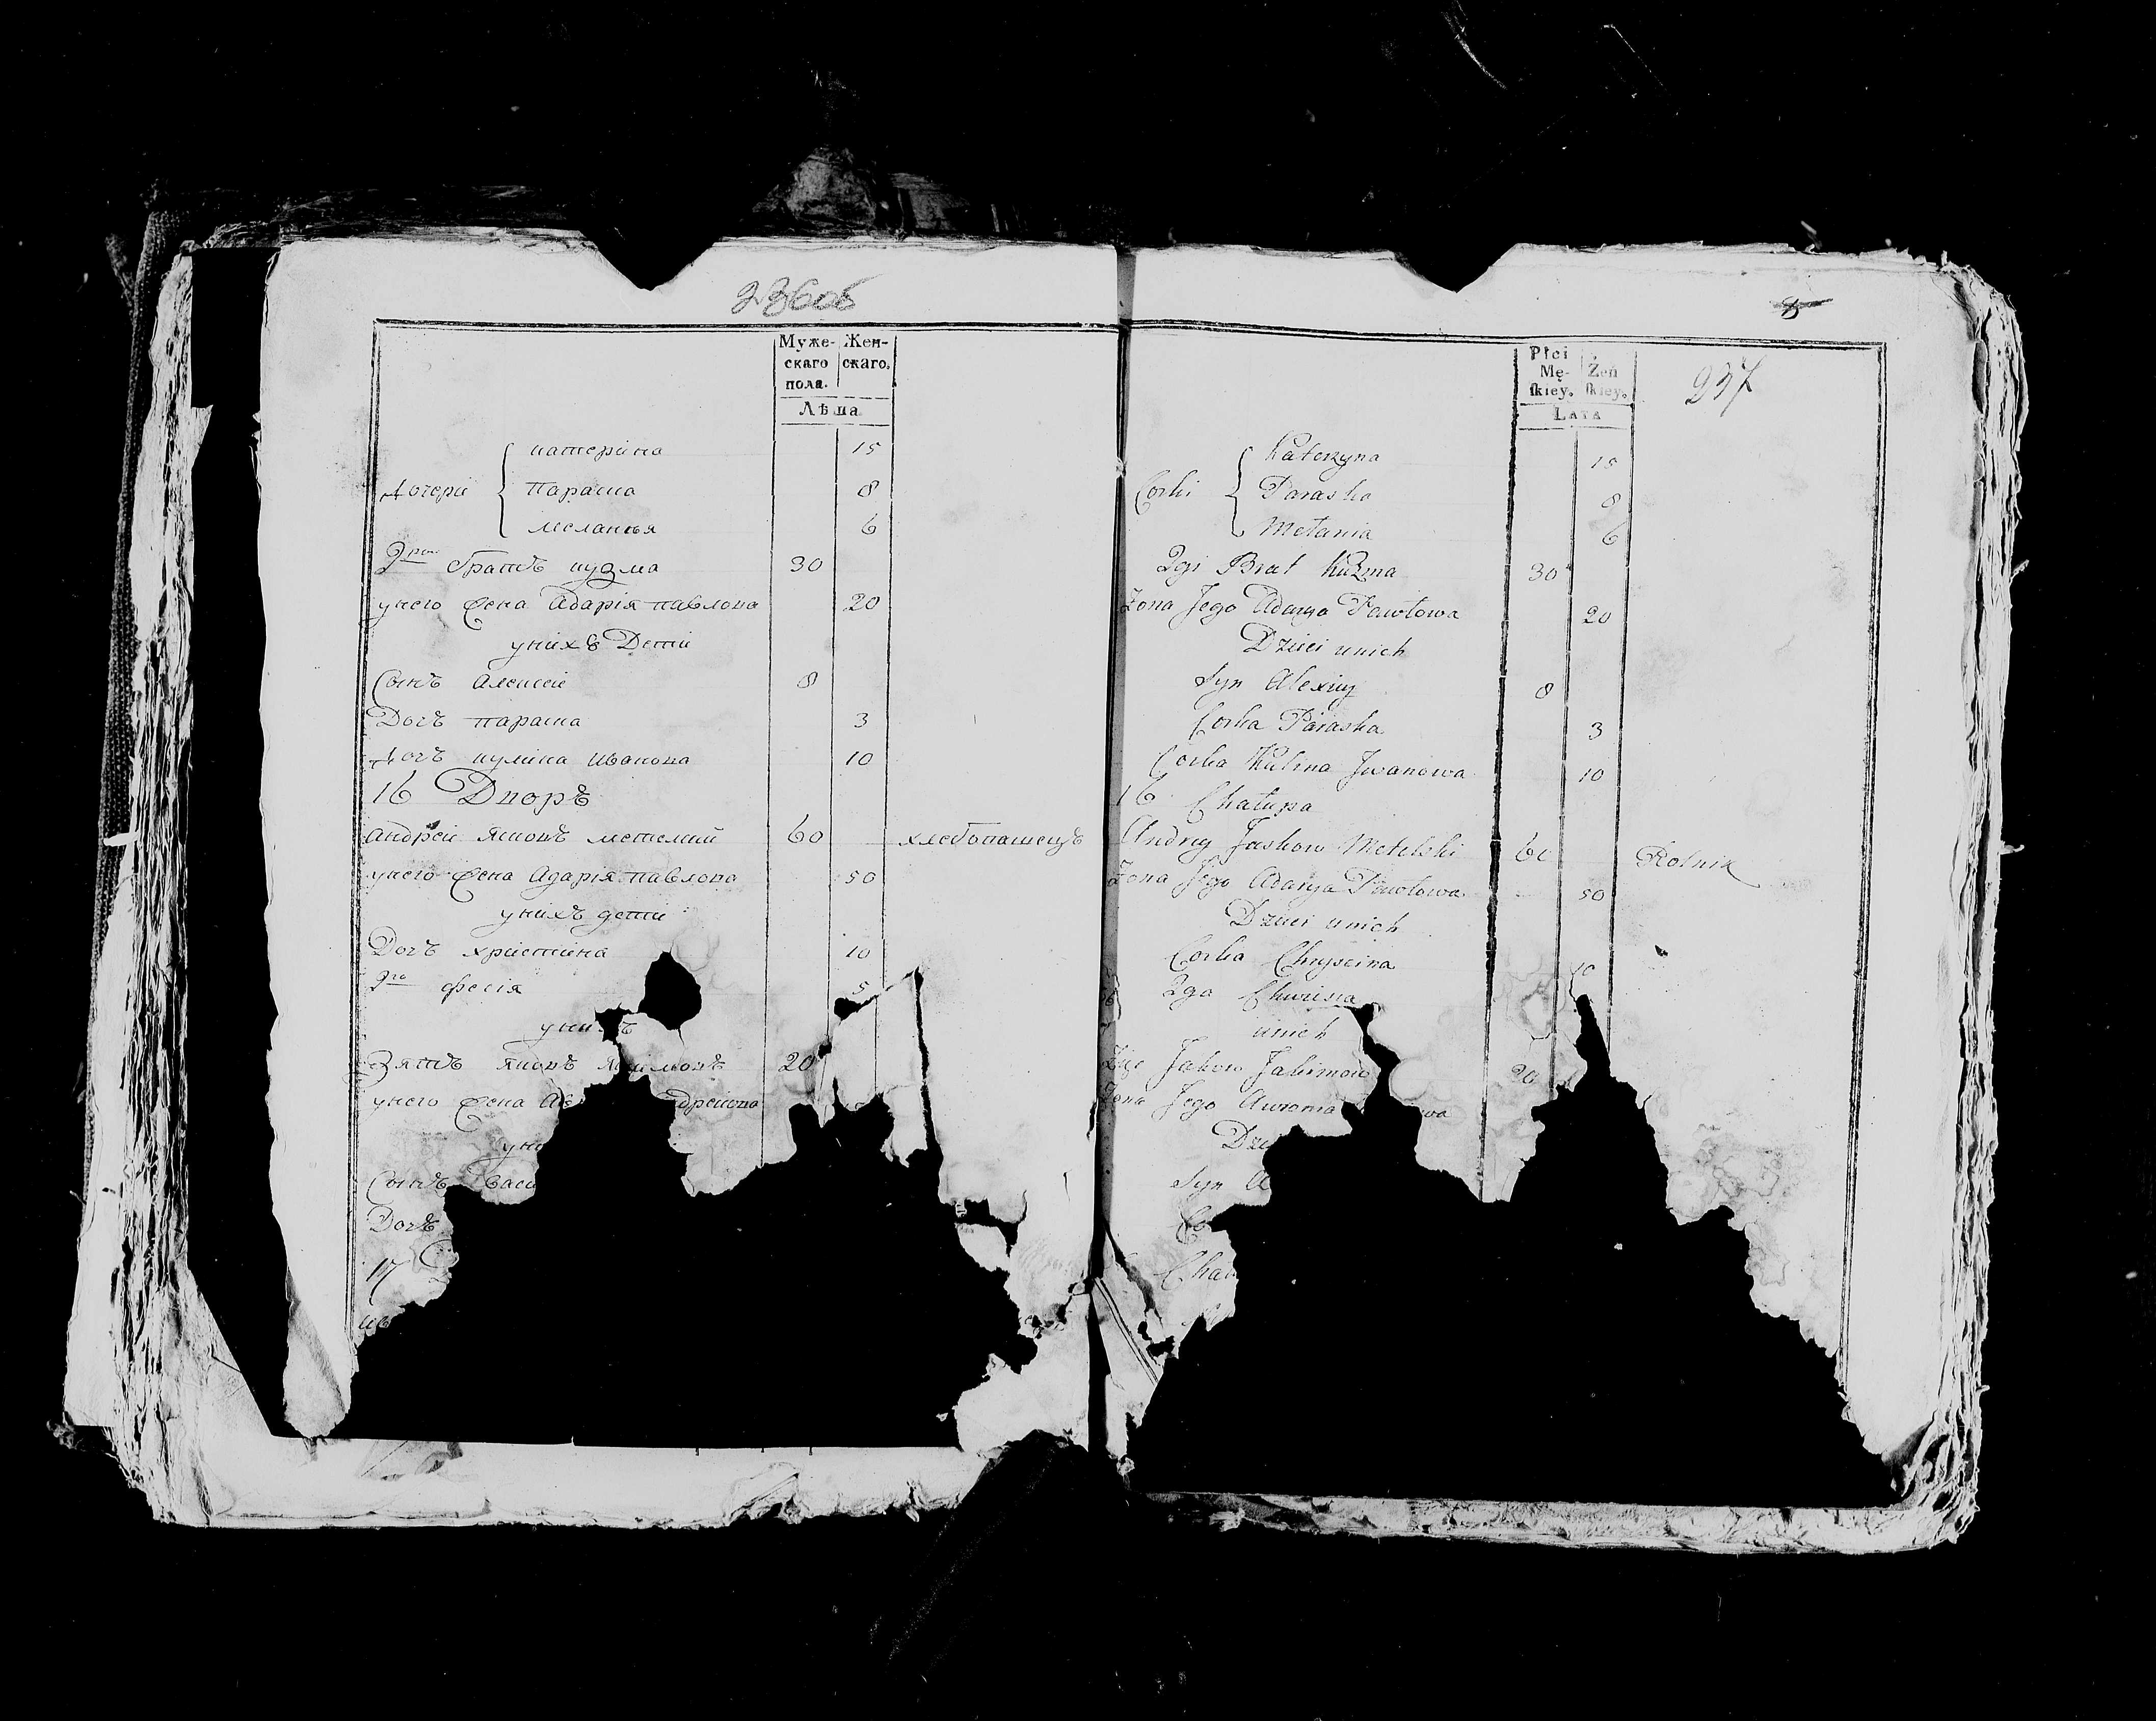 236об
Муже- Жен-
скаго скаго.
пола.
Лѣта
катерина 15
Дочерiе параска 8
меланья 6
2гои братъ кузма 30
унего жена Адарiя павлова 20
унихъ Дети
Сынъ Алексеи 8
Дочъ параска 3
Дочъ кулина иванова 10
16 Дворъ
Андреи Яковъ метелкии 60 хлебопашецъ
унего жена Адарiя павлова 50
унихъ дети
Дочъ христина 10
2га фесiя 5
унихъ
Зятъ яковъ 20
унего жена Ав дреикова
ун
Сынъ Васи
Дочъ
17
ив
8
237
Płci
Mę- Żeń
skiey. skiey.
Lata
Katerzyna 15
Corki Paraska 8
Mełania 6
2gi Brat Kuzma 30
Zona Jego Adarya Pawłowa 20
Dzieci unich
Syn Alexiey 8
Corka Paraska 3
Corka Kulina Jwanowa 10
16 Chałupa
Andrey Jaskow Metelski 60 Rolnik
Zona Jego Adarya Pawłowa 50
Dzieci unich
Corka Chryscina 10
2ga
unich
Zięc Jakow Jakimow 20
Zona Jego Awronia wa
Dzi
Syn A
Co
Chał